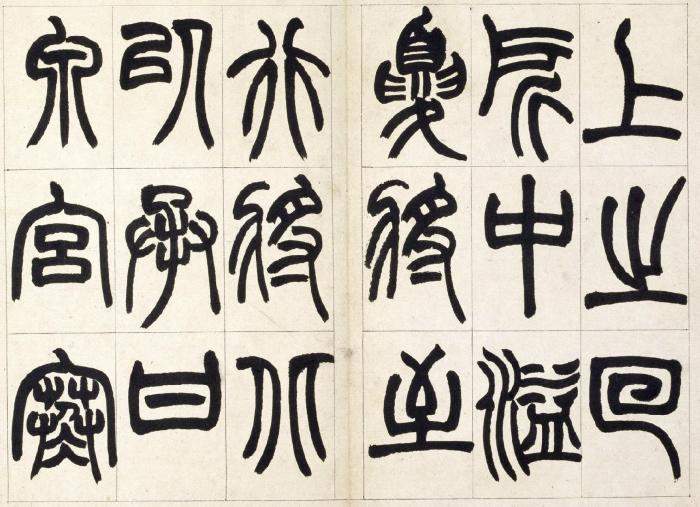 上之回
所中溢
夏將至
行將北
以承甘
泉宮寒